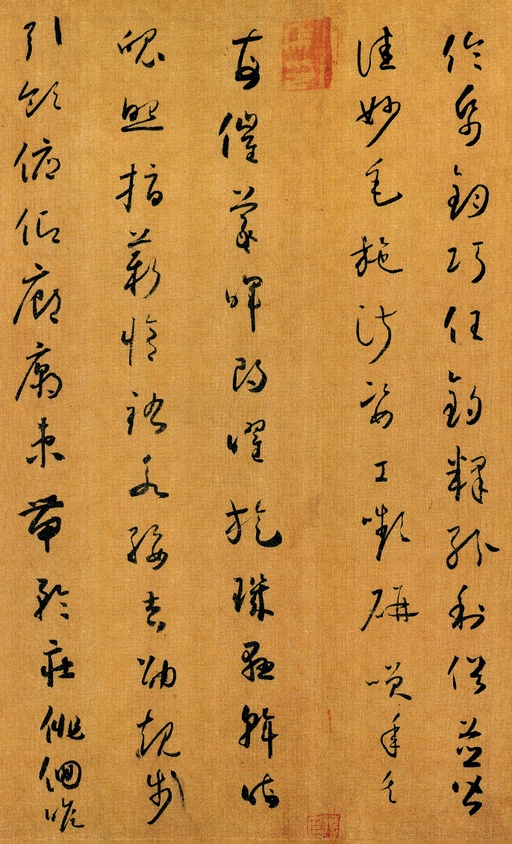 倫紙鈞巧任釣釋紛利俗並皆
佳妙毛施淑姿工嚬妍笑年矢
每催羲暉朗曜旋璣懸斡晦
魄照指薪修祜永綏吉劭矩步
引領俯仰廊廟束帶矜莊徘徊瞻